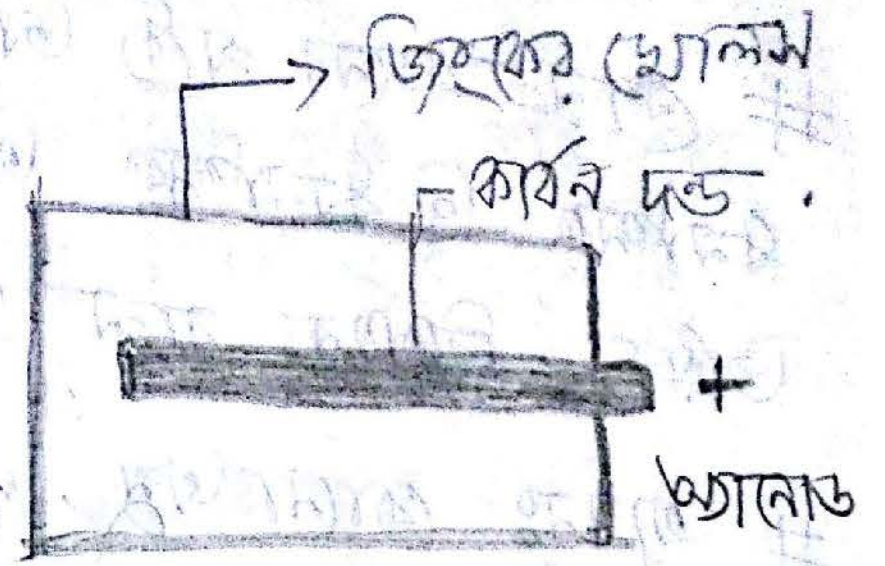 জিংকের খোলস
কার্বন দন্ড
+
অ্যানোড